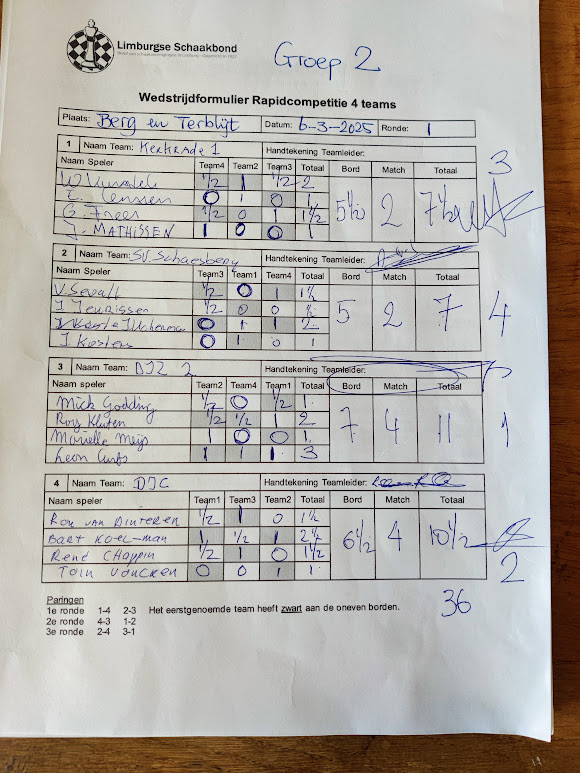 Limburgse Schaakbond
Groep 2
Wedstrijdformulier Rapidcompetitie 4 teams
Plaats: Berg en Terblijt Datum: 6-3-2025 Ronde: 1
1 Naam Team: KERKRADE 1 Handtekening Teamleider: 3
Naam Speler Team4 Team2 Team3 Totaal Bord Match Totaal
1/2 1 1/2 2
0 1 0 1
G. Freer 1/2 0 1 1 1/2
J. MATHISSEN 1 0 0 1
5 1/2 2 7 1/2
2 Naam Team: SV. Schaesberg Handtekening Teamleider:
Naam Speler Team3 Team1 Team4 Totaal Bord Match Totaal
V. Sevalt 1/2 0 1 1 1/2
J Jeurissen 1/2 0 0 1/2
0 1 1 2
J. Kosters 0 1 0 1
5 2 7 4
3 Naam Team: DJZ 2 Handtekening Teamleider:
Naam speler Team2 Team4 Team1 Totaal Bord Match Totaal
Mick Godding 1/2 0 1/2 1
Roy Kluten 1/2 1/2 1 2
Marielle Meijs 1 0 0 1
Leon Curfs 1 1 1 3
7 4 11 1
4 Naam Team: DJC Handtekening Teamleider:
Naam speler Team1 Team3 Team2 Totaal Bord Match Totaal
Ron van Dinteren 1/2 1 0 1 1/2
Bart Koel-man 1 1/2 1 2 1/2
René Chappin 1/2 1 0 1 1/2
Toin Voncken 0 0 1 1
6 1/2 4 10 1/2
2
36
Paringen
1e ronde 1-4 2-3 Het eerstgenoemde team heeft zwart aan de oneven borden.
2e ronde 4-3 1-2
3e ronde 2-4 3-1